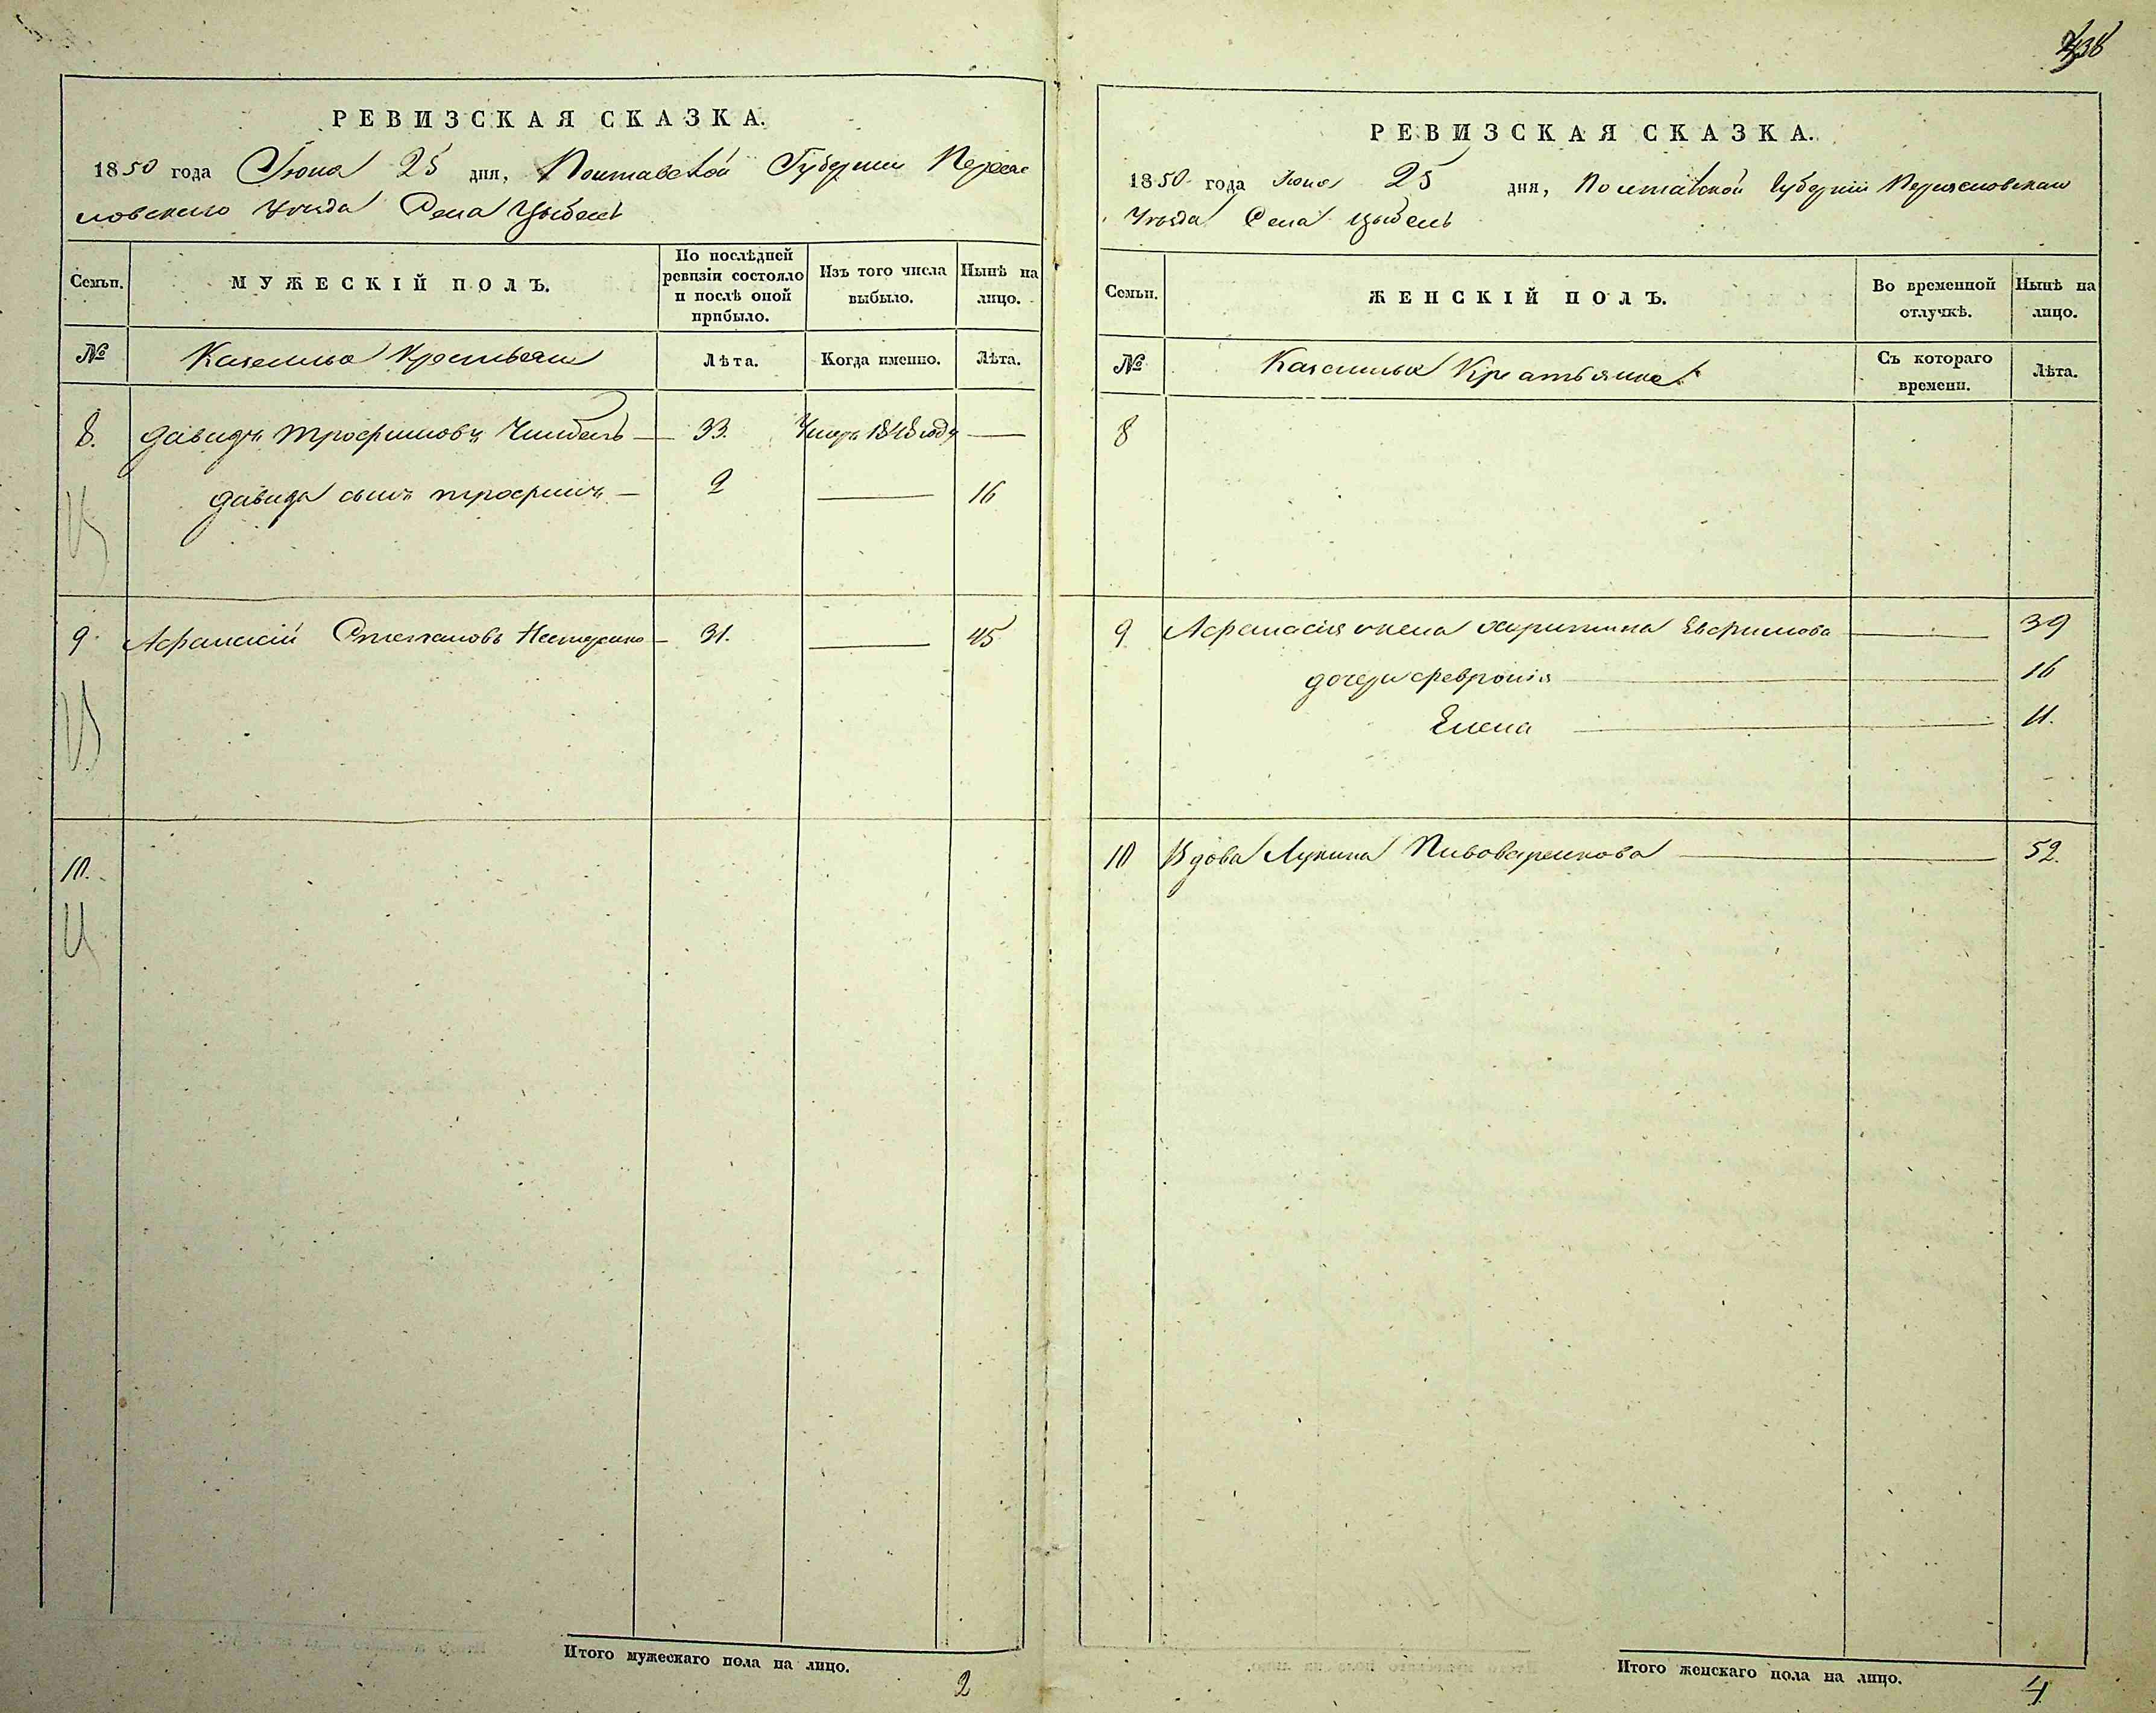 438
РЕВИЗСКАЯ СКАЗКА.
1850 года Июня 25 дня, Полтавской Губернии Переяс
ловского Уезда Села Цыбель
Семьи.
МУЖЕСКІЙ ПОЛЪ.
По послѣдней
ревизіи состояло
и послѣ оной
прибыло.
Изъ того числа
выбыло.
Нынѣ на
лицо.
№
Казенные Крестьяни
Лѣта.
Когда именно.
Лѣта.
8. Давидъ Трофимовъ Чимбель 33. Умеръ 1848 году
Давида сынъ Трофимъ 2 16
9. Афанасий Степановъ Нестеренко 31. 45
10.
Итого мужескаго пола на лицо.
2
РЕВИЗСКАЯ СКАЗКА.
1850 года Июня 25 дня, Полтавской Губерніи Переясловскаго
Уезда Села Цыбель
Семьи.
ЖЕНСКІЙ ПОЛЪ.
Во временной
отлучкѣ.
Нынѣ на
лицо.
№
Казенные Крестьянки
Съ котораго
времени.
Лѣта.
8
9 Афанасия жена Харитина Евфимова 39
дочери Феврония 16
Елена 11.
10 Вдова Лукина Пивоваренкова 52.
Итого женскаго пола на лицо.
4